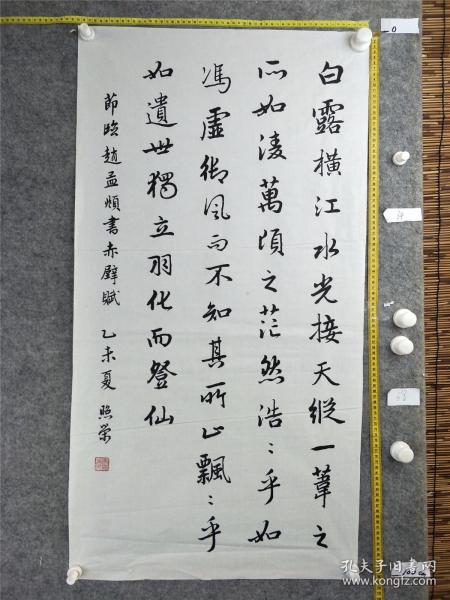 白露橫江水光接天縱一葦之
所如淩萬頃之茫然浩〻乎如
馮虛御風而不知其所止飄〻乎
如遺世獨立羽化而登仙
節臨趙孟頫書赤壁賦 乙未夏 照榮
孔夫子旧书网
kongfz.com